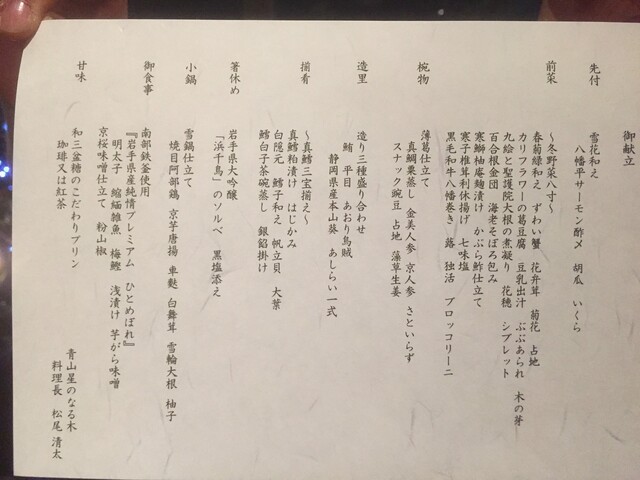 御献立
先付
雪花和え
八幡平サーモン酢〆 胡瓜 いくら
前菜
〜冬野菜八寸〜
春菊緑和え ずわい蟹 花弁茸 菊花 占地
カリフラワーの葛豆腐 豆乳出汁 ぶぶあられ 木の芽
九絵と聖護院大根の煮凝り 花穂 シブレット
百合根金団 海老そぼろ包み
寒鰤柚庵麹漬け かぶら鮓仕立て
寒子椎茸利休揚げ 七味塩
黒毛和牛八幡巻き 蕗 独活 ブロッコリーニ
椀物
薄葛仕立て
真鯛粟蒸し 金美人参 京人参 さといらず
スナック豌豆 占地 藻草生姜
造里
造り三種盛り合わせ
鮪 平目 あおり烏賊
静岡県産本山葵 あしらい一式
揃肴
〜真鱈三宝揃え〜
真鱈粕漬け はじかみ
白隠元 鱈子和え 帆立貝 大葉
鱈白子茶碗蒸し 銀餡掛け
箸休め
岩手県大吟醸
「浜千鳥」のソルベ 黒塩添え
小鍋
雪鍋仕立て
焼目阿部鶏 京芋唐揚 車麩 白舞茸 雪輪大根 柚子
御食事
南部鉄釜使用
『岩手県産純情プレミアム ひとめぼれ』
明太子 縮緬雑魚 梅鰹 浅漬け 芋がら味噌
京桜味噌仕立て 粉山椒
甘味
和三盆糖のこだわりプリン
珈琲又は紅茶
青山星のなる木
料理長 松尾 清太